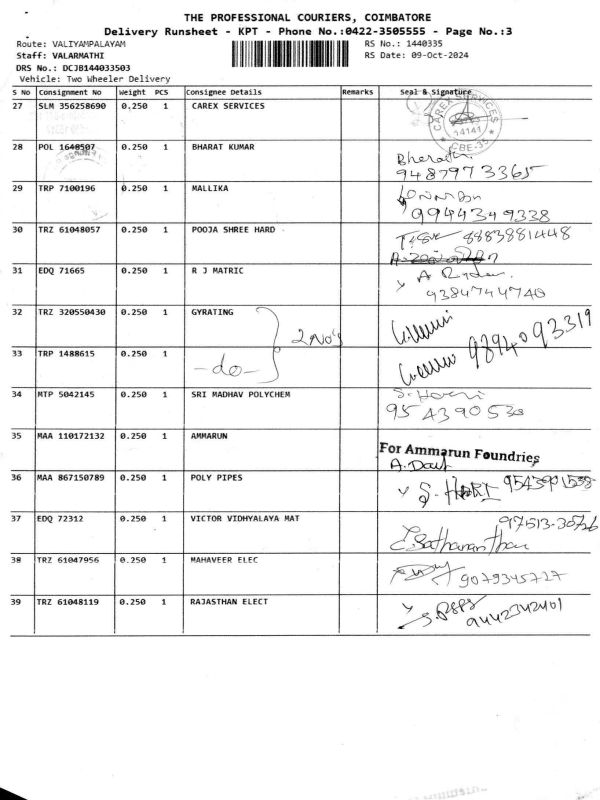 THE PROFESSIONAL COURIERS, COIMBATORE
Delivery Runsheet - KPT - Phone No.:0422-3505555 - Page No.:3
Route: VALIYAMPALAYAM RS No.: 1440335
Staff: VALARMATHI RS Date: 09-Oct-2024
DRS No.: DCJB144033503
Vehicle: Two Wheeler Delivery
S No Consignment No Weight PCS Consignee Details Remarks Seal & Signature
27 SLM 356258690 0.250 1 CAREX SERVICES CAREX SERVICES 14141 CBE-35
28 POL 1648507 0.250 1 BHARAT KUMAR Bharath
9487973365
29 TRP 7100196 0.250 1 MALLIKA
9944349338
30 TRZ 61048057 0.250 1 POOJA SHREE HARD 8883881448
31 EDQ 71665 0.250 1 R J MATRIC
9384744740
32 TRZ 320550430 0.250 1 GYRATING 2 No's 9894093319
33 TRP 1488615 0.250 1 -do-
34 MTP 5042145 0.250 1 SRI MADHAV POLYCHEM S. Hari
954390530
35 MAA 110172132 0.250 1 AMMARUN For Ammarun Foundries
36 MAA 867150789 0.250 1 POLY PIPES S. HARI
37 EDQ 72312 0.250 1 VICTOR VIDHYALAYA MAT
38 TRZ 61047956 0.250 1 MAHAVEER ELEC 9079345727
39 TRZ 61048119 0.250 1 RAJASTHAN ELECT 9442342401